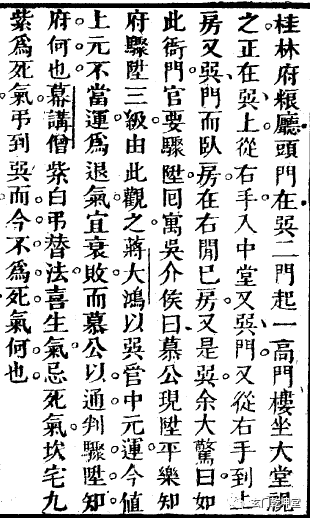 桂林府粮廳頭門在巽二門起一高門樓坐大堂
之正在巽上從右手入中堂又巽門又從右手到上
房又巽門而臥房在右閒巳房又是巽余大驚曰如
此衙門官要驟陞囘寓吳介侯曰慕公現陞平樂知
府驟陞三級由此觀之蔣大鴻以巽管中元運今値
上元不當運爲退氣宜衰敗而慕公以通判驟陞知
府何也幕講僧紫白弔替法喜生氣忌死氣坎宅九
紫爲死氣弔到巽而今不爲死氣何也